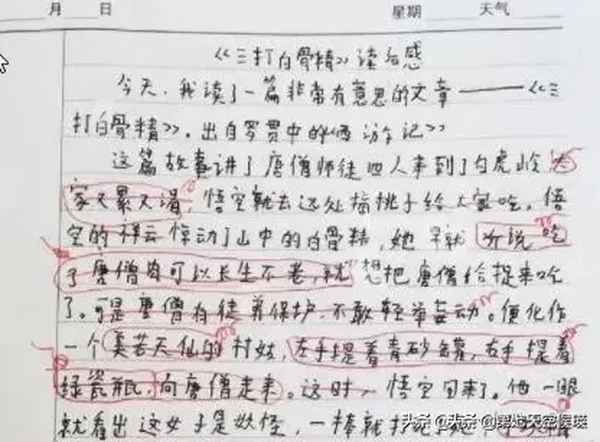 月 日 星期 天气
《三打白骨精》读后感
今天,我读了一篇非常有意思的文章——《三
打白骨精》。出自罗贯中的《西游记》
这篇故事讲了唐僧师徒四人来到了白虎岭大
家又累又渴,悟空就去远处摘桃子给大家吃。悟
空的祥云惊动了山中的白骨精,她早就听说吃
了唐僧肉可以长生不老,就想把唐僧给捉来吃
了。可是唐僧有徒弟保护,不敢轻举妄动。便化作
一个美若天仙的村姑,左手提着青砂罐,右手提着
绿瓷瓶,向唐僧走来。这时,悟空回来了。他一眼
就看出这女子是妖怪,一棒就打
头条 @头条 @